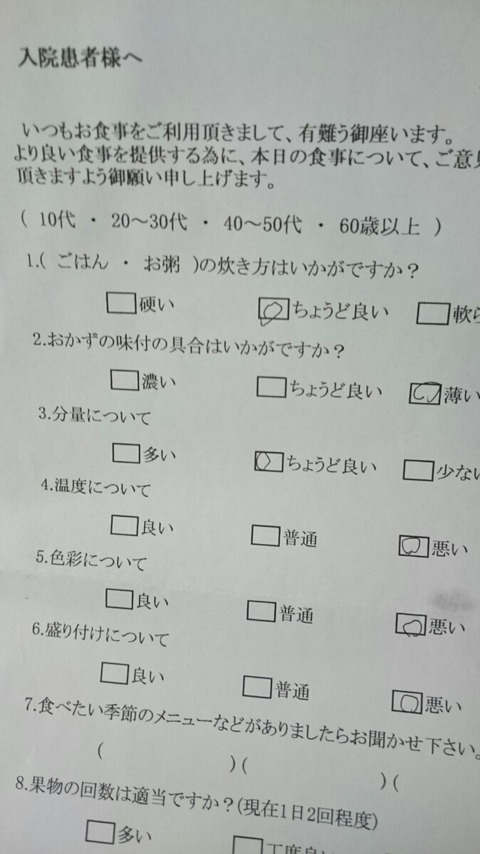 入院患者様へ
いつもお食事をご利用頂きまして、有難う御座います。
より良い食事を提供する為に、本日の食事について、ご意見
頂きますよう御願い申し上げます。
( 10代 ・ 20～30代 ・ 40～50代 ・ 60歳以上 )
1.( ごはん ・ お粥 )の炊き方はいかがですか？
硬い ちょうど良い 軟ら
2.おかずの味付の具合はいかがですか？
濃い ちょうど良い 薄い
3.分量について
多い ちょうど良い 少ない
4.温度について
良い 普通 悪い
5.色彩について
良い 普通 悪い
6.盛り付けについて
良い 普通 悪い
7.食べたい季節のメニューなどがありましたらお聞かせ下さい。
( )( )(
8.果物の回数は適当ですか？(現在1日2回程度)
多い 丁度良い